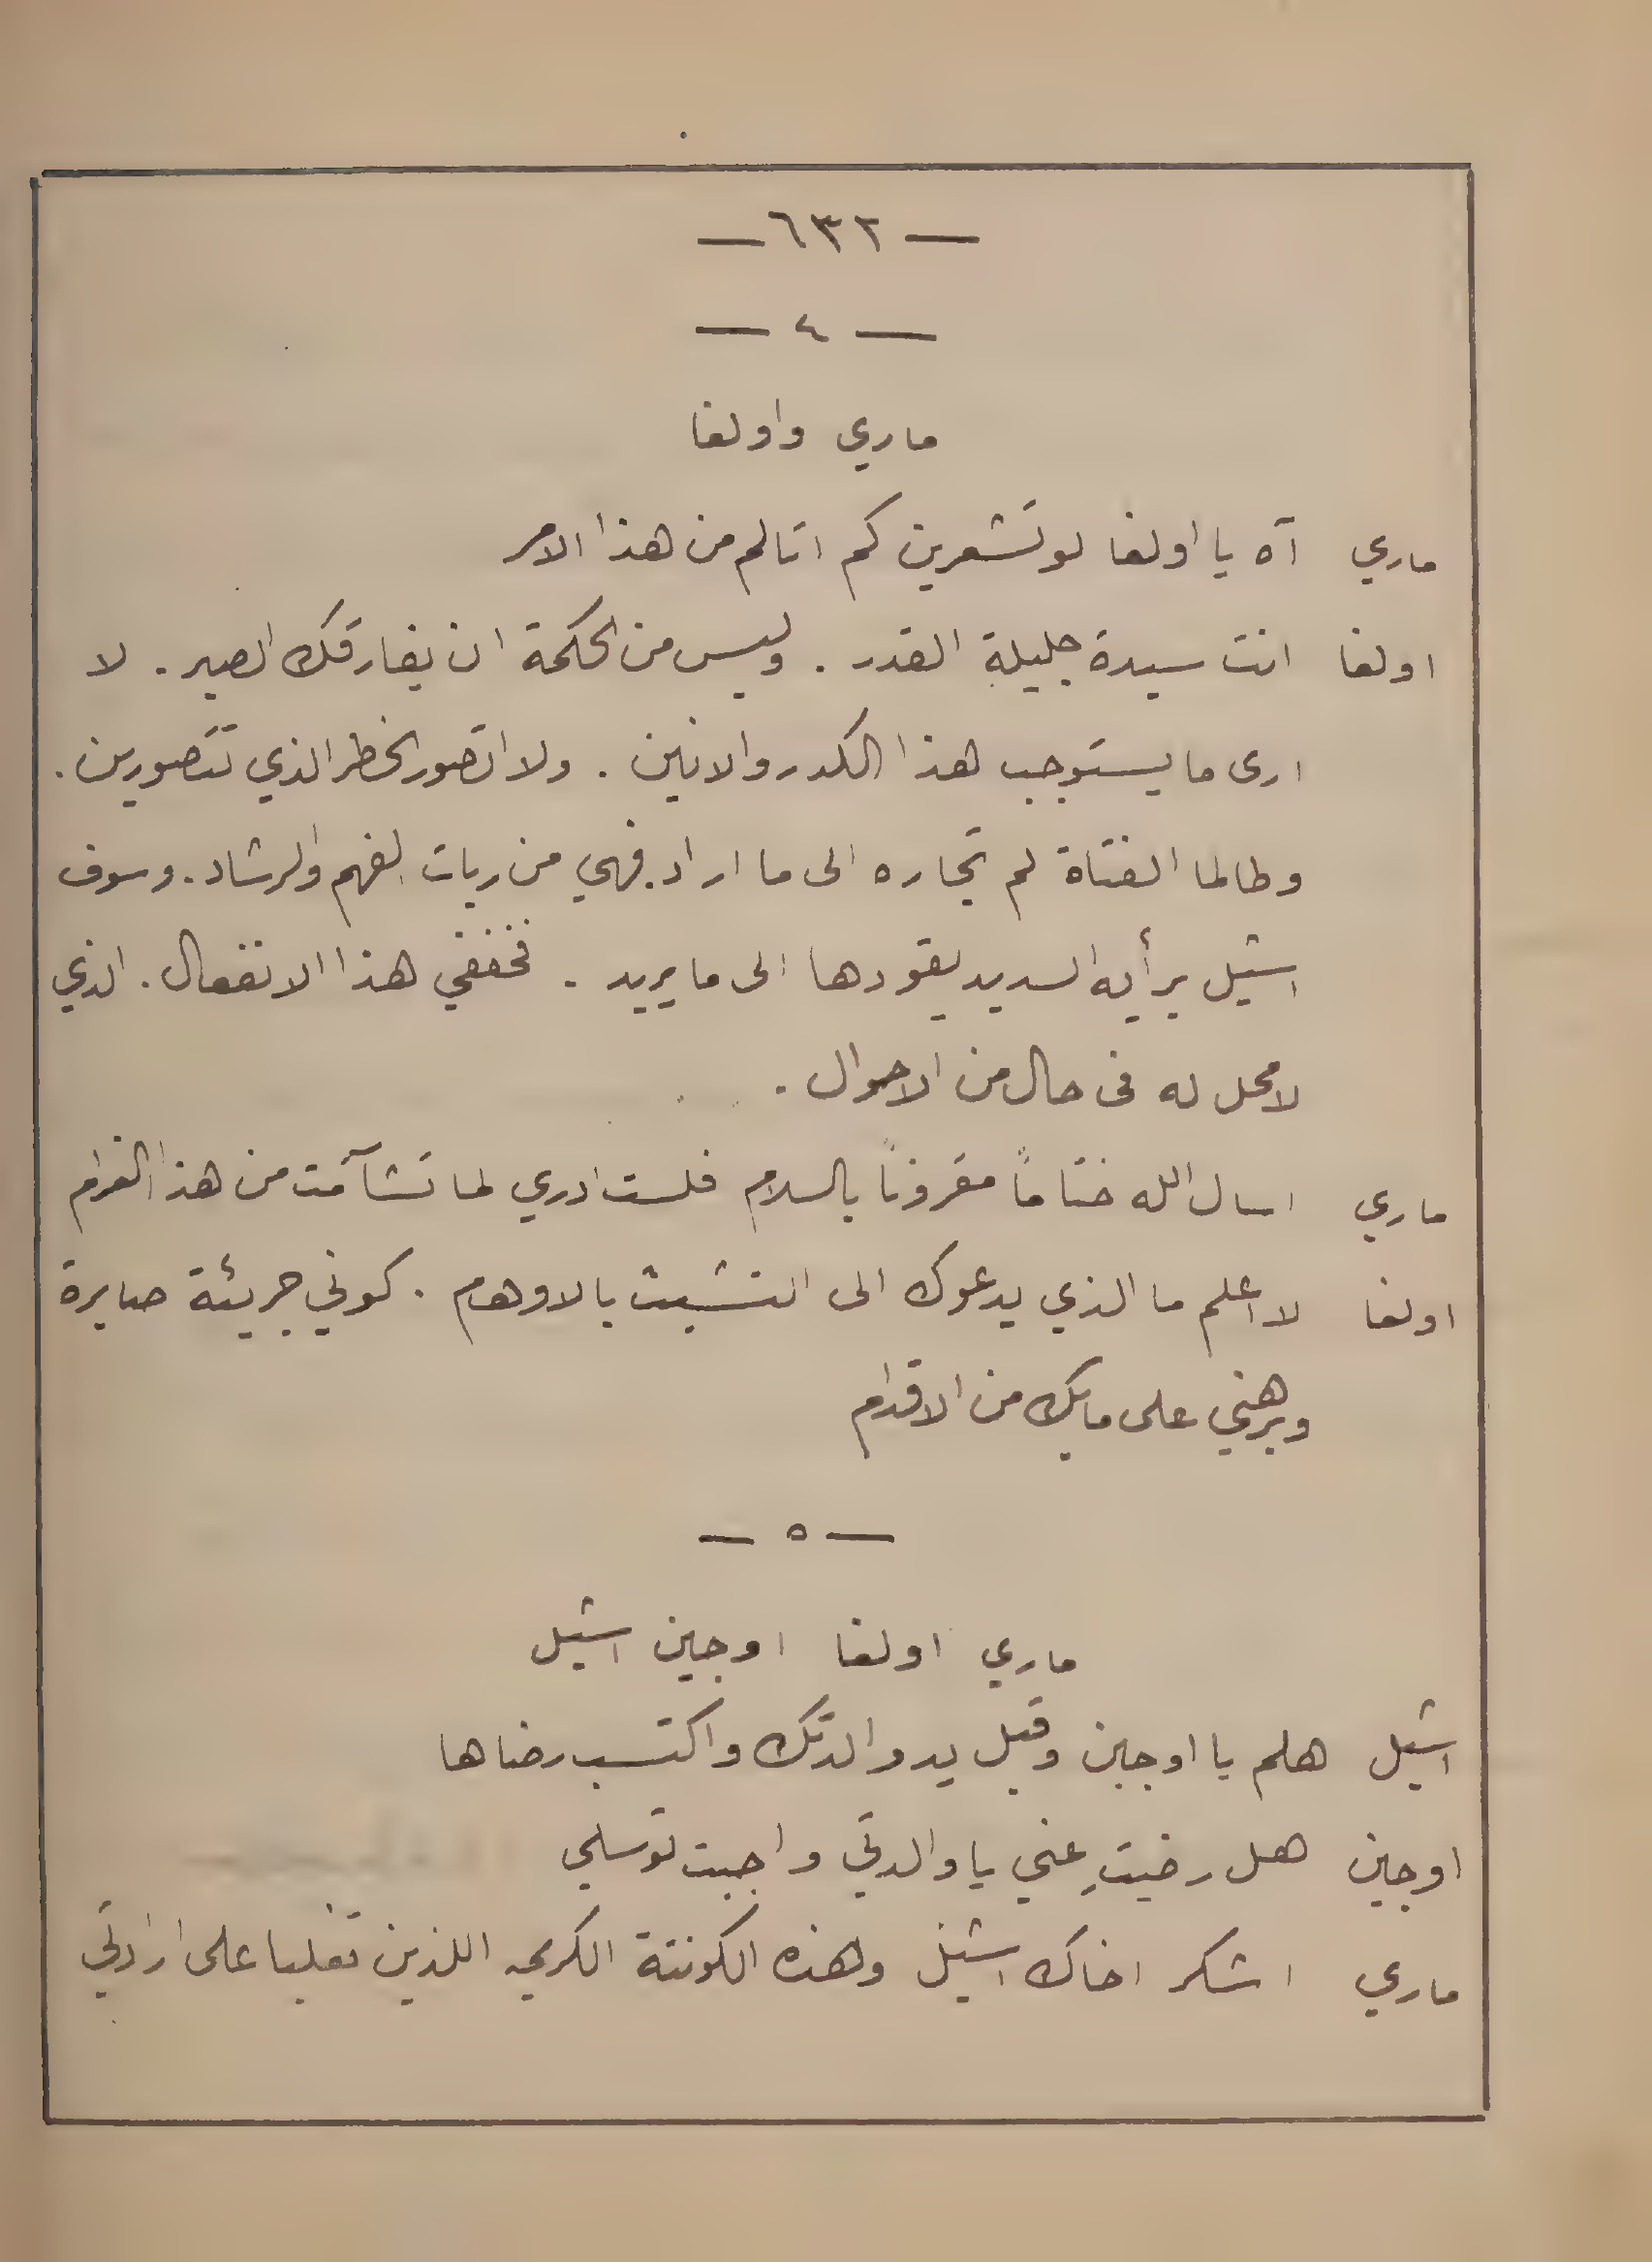 — ٦٣٢ —
— ٤ —
ماري واولغا
ماري آه يا اولغا لو تشعرين كم اتالم من هذا الامر
اولغا انت سيدة جليلة القدر . وليس من الحكمة ان يفارقك الصبر . لا
ارى ما يستوجب هذا الكدر والانين . ولا اتصور الخطر الذي تتصورين .
وطالما الفتاة لم تجاره الى ما اراد . فهي من ربات الفهم والرشاد . وسوف
اشيل برأيه السديد يقودها الى ما يريد . فخففي هذا الانفعال . الذي
لا محل له في حال من الاحوال .
ماري اسال الله ختاماً مقروناً بالسلام فلست ادري لما تشآمت من هذا الغرام
اولغا لا اعلم ما الذي يدعوك الى التشبث بالاوهام . كوني جريئة صابرة
وبرهني على ما بك من الاقدام
— ٥ —
ماري اولغا اوجين اشيل
اشيل هلم يا اوجين وقبل يد والدتك واكتسب رضاها
اوجين هل رضيتِ عني يا والدتي واجبت توسلي
ماري اشكر اخاك اشيل وهذه الكونتة الكريمه اللذين تغلبا على ارادتي